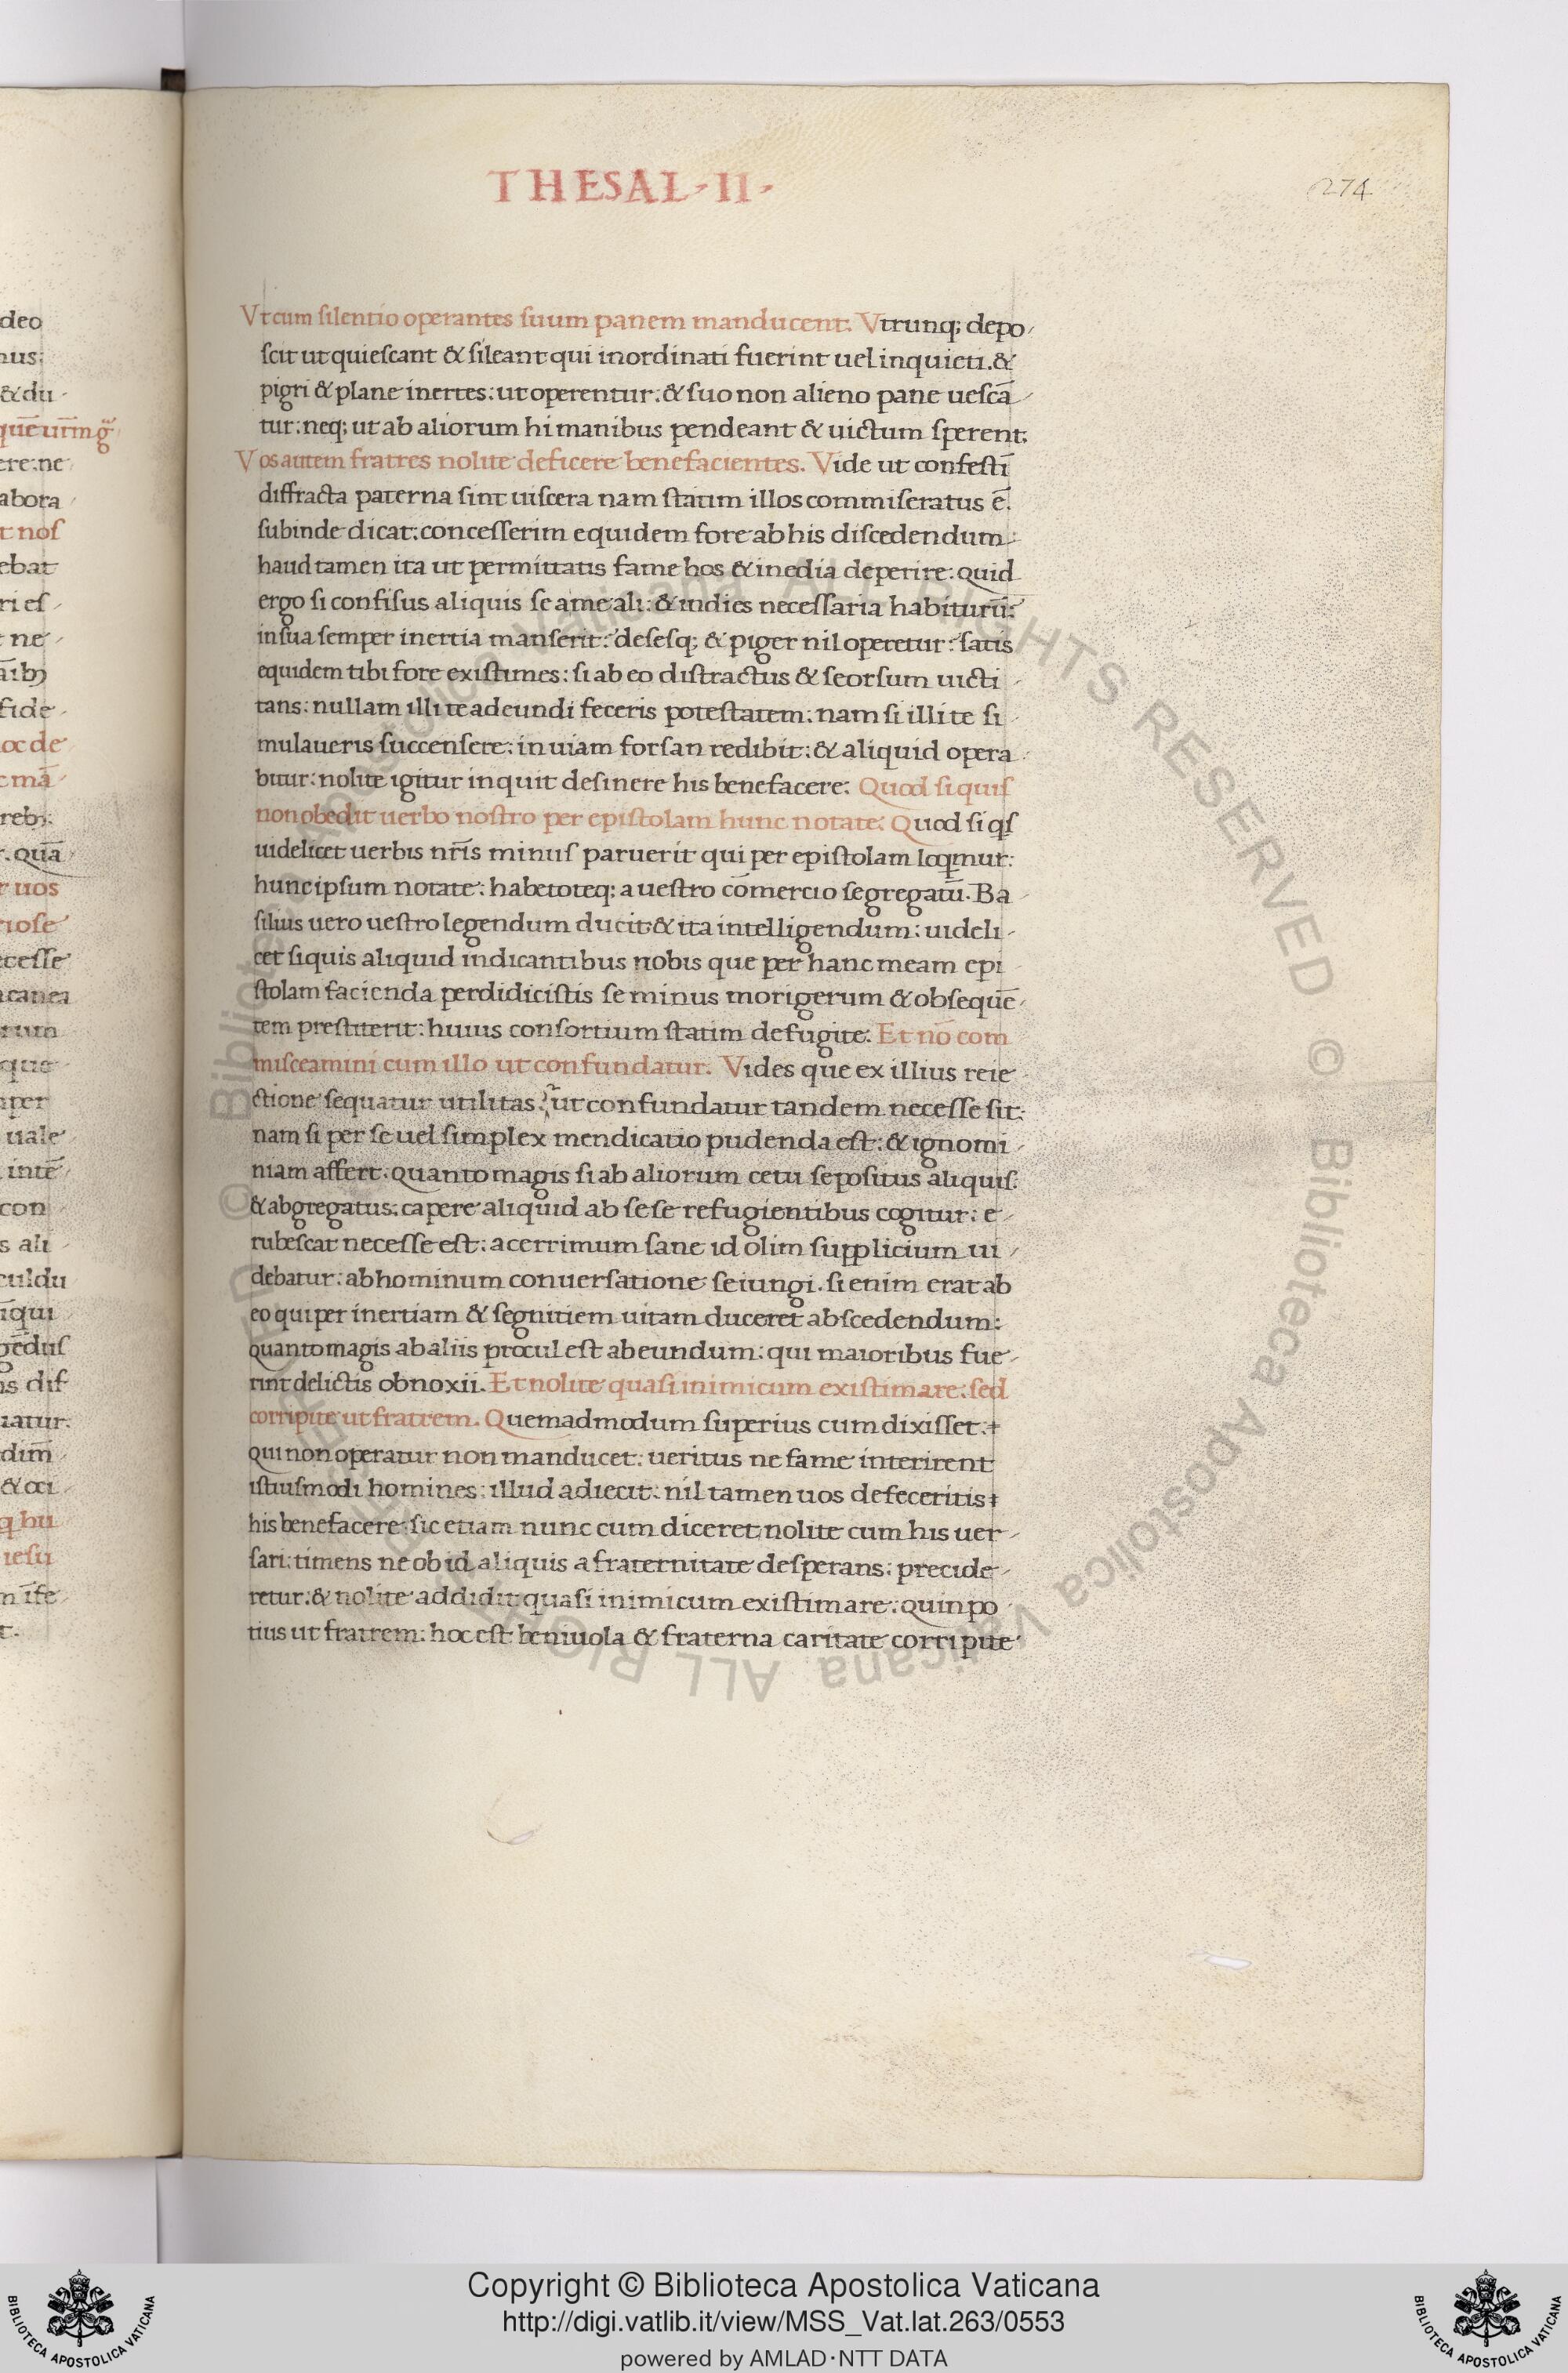 THESAL·II·
274
Vt cum silentio operantes suum panem manducent. Vtrunq; depo
scit ut quiescant & sileant qui inordinati fuerint uel inquieti. &
pigri & plane inertes: ut operentur: & suo non alieno pane uescā
tur: neq; ut ab aliorum hi manibus pendeant & uictum sperent.
Vos autem fratres nolite deficere benefacientes. Vide ut confestī
diffracta paterna sint uiscera nam statim illos commiseratus ē.
subinde dicat: concesserim equidem fore ab his discedendum:
haud tamen ita ut permittatis fame hos & inedia deperire: quid
ergo si confisus aliquis se a me ali: & indies necessaria habiturū:
in sua semper inertia manserit: desesq; & piger nil operetur: satis
equidem tibi fore existimes: si ab eo distractus & seorsum uicti
tans: nullam illi te adeundi feceris potestatem: nam si illi te si
mulaueris succensere: in uiam forsan redibit: & aliquid opera
bitur: nolite igitur inquit desinere his benefacere: Quod si quis
non obedit uerbo nostro per epistolam hunc notate: Quod si qs
uidelicet uerbis nr̄is minus paruerit qui per epistolam loqmur:
hunc ipsum notate: habetoteq; a uestro cōmercio segregatū. Ba
silius uero uestro legendum ducit & ita intelligendum: uideli
cet siquis aliquid indicantibus nobis que per hanc meam epi
stolam facienda perdidicistis se minus morigerum & obsequē
tem prestiterit: huius consortium statim defugite. Et nō com
misceamini cum illo ut confundatur. Vides que ex illius reie
ctione sequatur utilitas: ut confundatur tandem necesse sit:
nam si per se uel simplex mendicatio pudenda est: & ignomi
niam affert: quanto magis si ab aliorum cetu sepositus aliquis:
& abgregatus: capere aliquid ab sese refugientibus cogitur: e
rubescat necesse est: acerrimum sane id olim supplicium ui
debatur: ab hominum conuersatione seiungi. si enim erat ab
eo qui per inertiam & segnitiem uitam duceret abscedendum:
quanto magis ab aliis procul est abeundum: qui maioribus fue
rint delictis obnoxii. Et nolite quasi inimicum existimare: sed
corripite ut fratrem. Quemadmodum superius cum dixisset:
qui non operatur non manducet: ueritus ne fame interirent
istiusmodi homines: illud adiecit: nil tamen uos defeceritis
his benefacere: sic etiam nunc cum diceret nolite cum his uer
sari: timens ne ob id aliquis a fraternitate desperans: precide
retur: & nolite addidit quasi inimicum existimare: quin po
tius ut fratrem: hoc est beniuola & fraterna caritate corripite
Copyright © Biblioteca Apostolica Vaticana
http://digi.vatlib.it/view/MSS_Vat.lat.263/0553
powered by AMLAD·NTT DATA